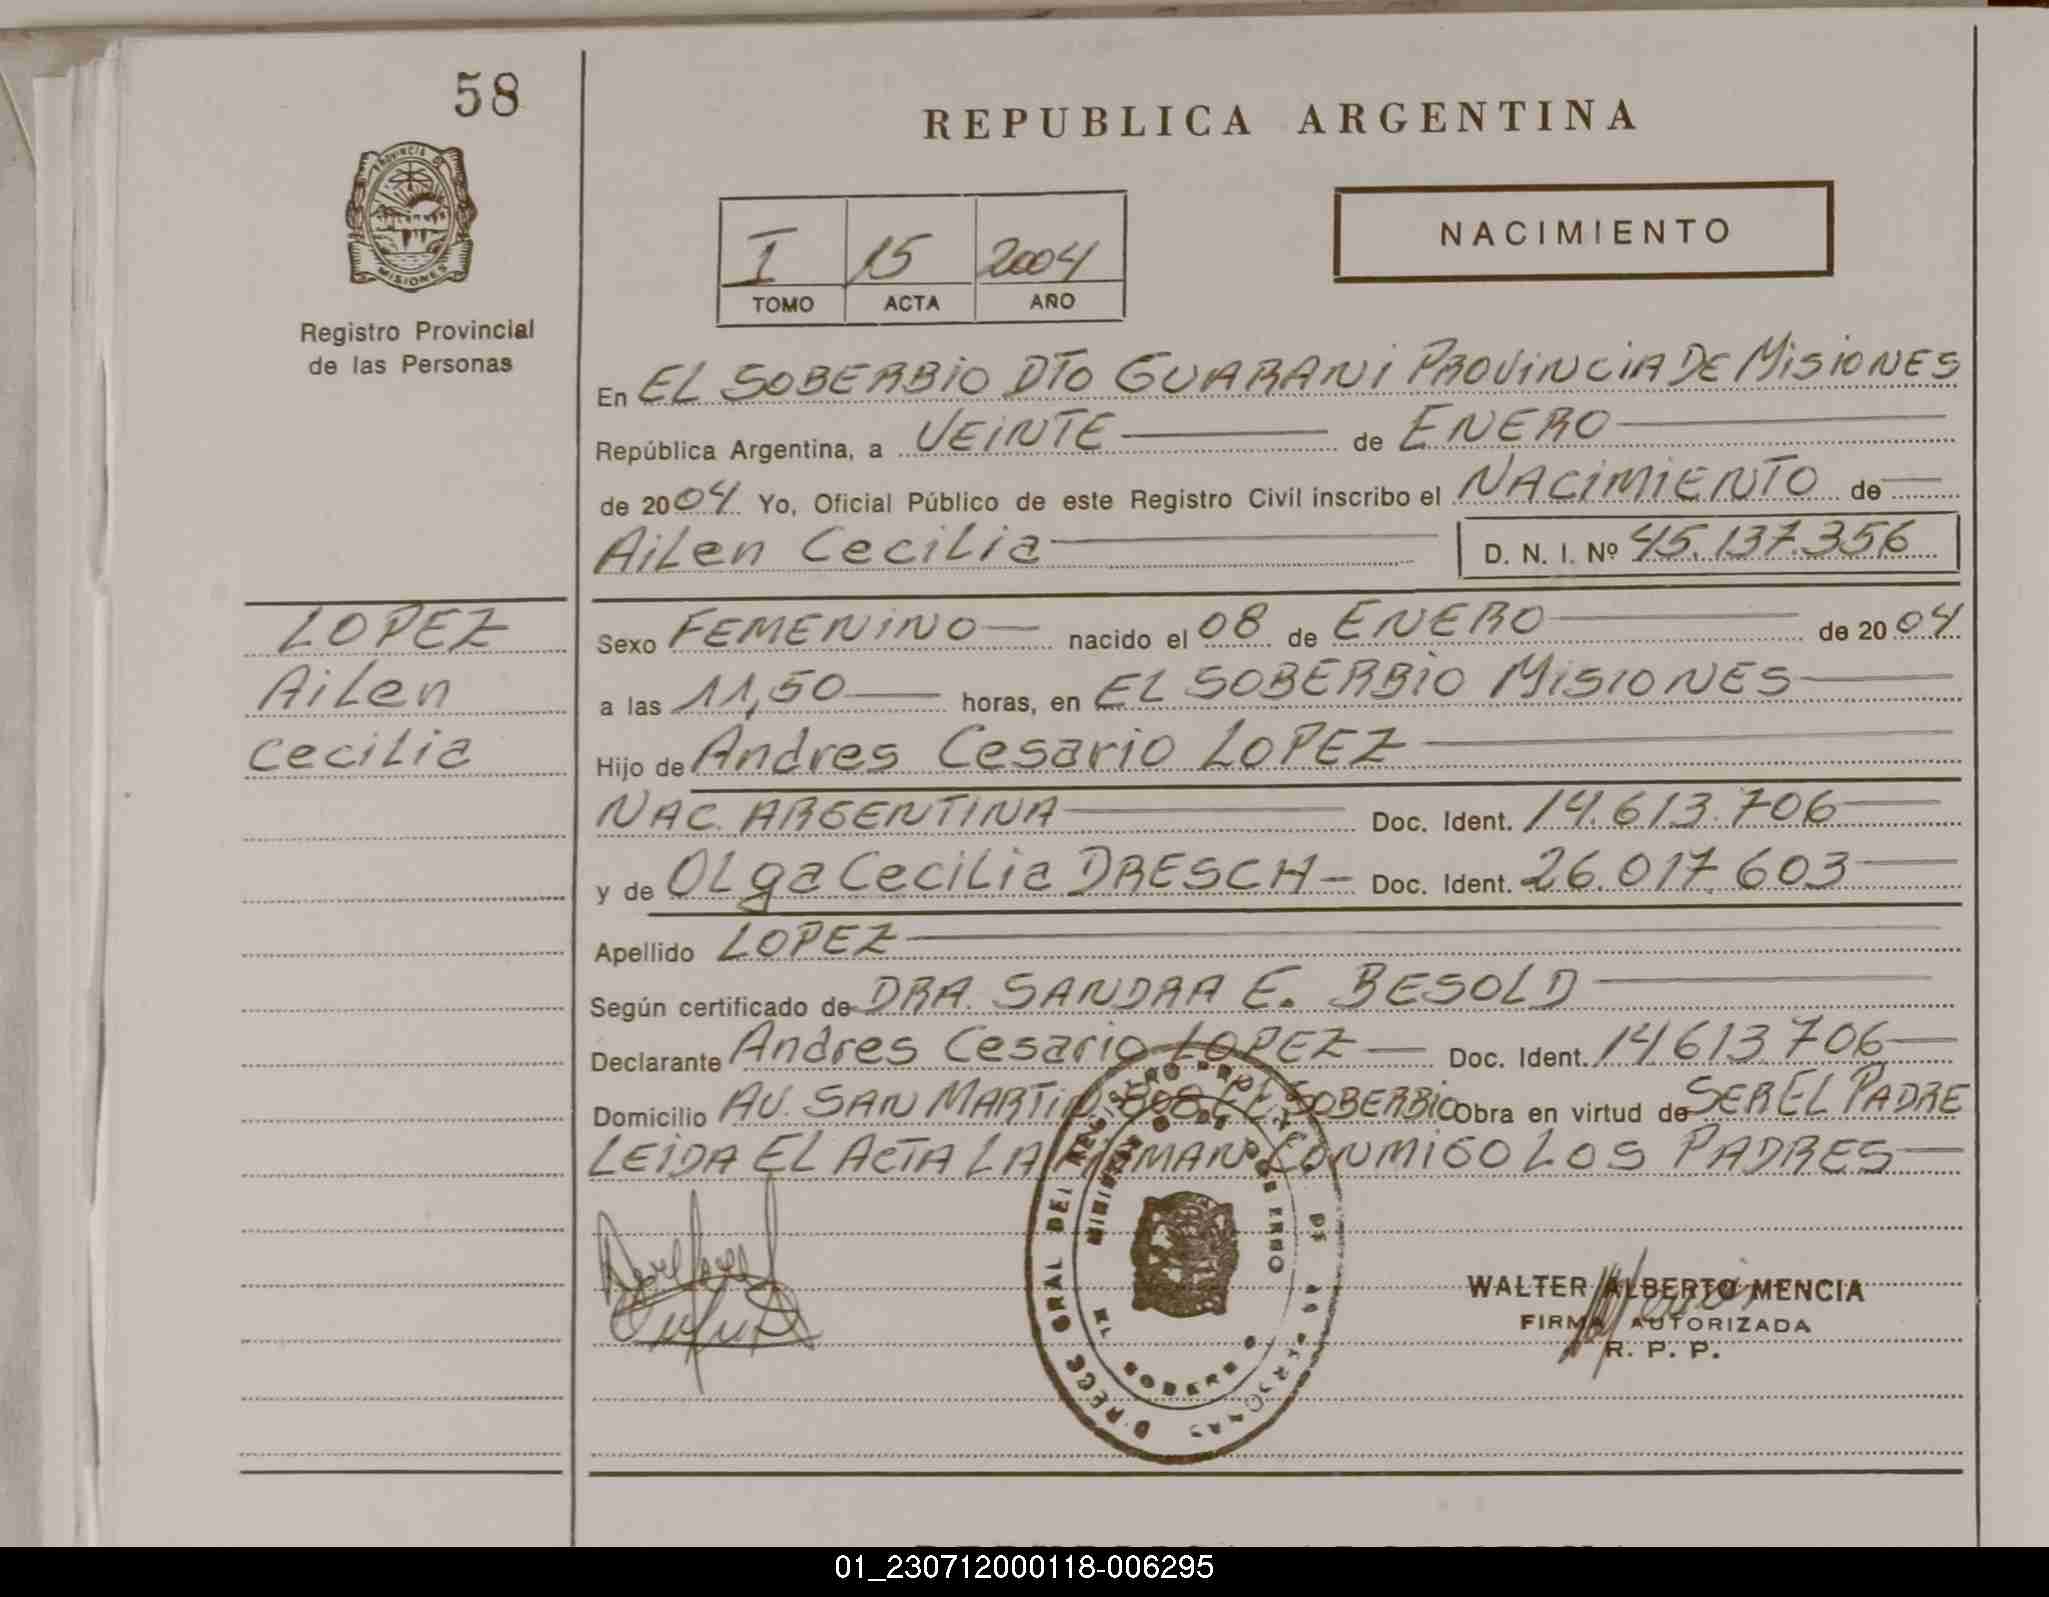 58
REPUBLICA ARGENTINA
PROVINCIA DE
MISIONES
Registro Provincial
de las Personas
I 15 2004
TOMO ACTA AÑO
NACIMIENTO
En EL SOBERBIO DTO GUARANI PROVINCIA DE MISIONES
República Argentina, a VEINTE de ENERO
de 2004 Yo, Oficial Público de este Registro Civil inscribo el NACIMIENTO de
Ailen Cecilia D. N. I. Nº 45.137.356
LOPEZ
Ailen
Cecilia
Sexo FEMENINO nacido el 08 de ENERO de 2004
a las 11,50 horas, en EL SOBERBIO MISIONES
Hijo de Andres Cesario LOPEZ
NAC. ARGENTINA Doc. Ident. 14.613.706
y de OLga Cecilia DRESCH Doc. Ident. 26.017.603
Apellido LOPEZ
Según certificado de DRA. SANDRA E. BESOLD
Declarante Andres Cesario LOPEZ Doc. Ident. 14613706
Domicilio AV. SAN MARTIN 808 EL SOBERBIO Obra en virtud de SER EL PADRE
LEIDA EL ACTA LA FIRMAN CONMIGO LOS PADRES
WALTER ALBERTO MENCIA
FIRMA AUTORIZADA
R. P. P.
01_230712000118-006295